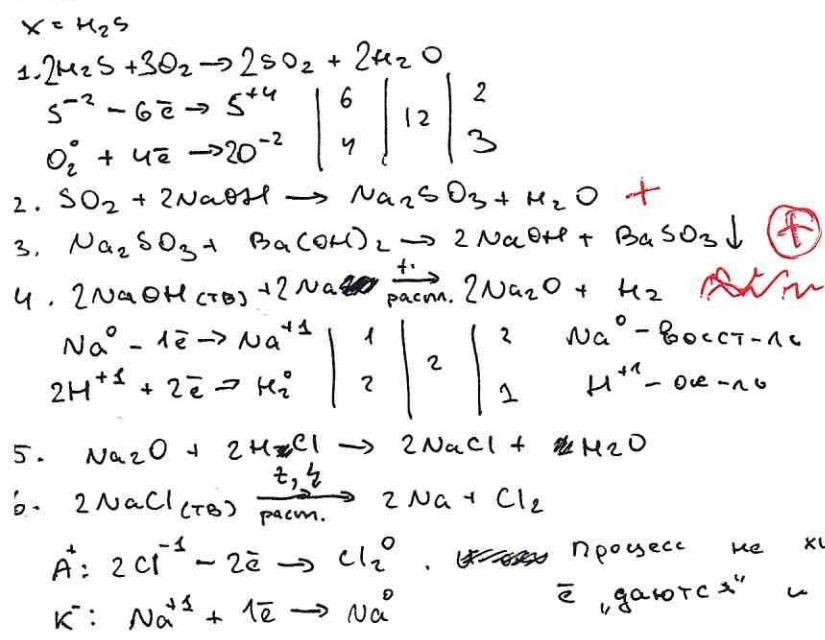 x = H₂S
1. 2H₂S + 3O₂ → 2SO₂ + 2H₂O
S⁻² - 6ē → S⁺⁴ | 6 | 12 | 2
O₂⁰ + 4ē → 2O⁻² | 4 | | 3
2. SO₂ + 2NaOH → Na₂SO₃ + H₂O +
3. Na₂SO₃ + Ba(OH)₂ → 2NaOH + BaSO₃↓ +
4. 2NaOH(тв) + 2Na t. → распл. 2Na₂O + H₂
Na⁰ - 1ē → Na⁺¹ | 1 | 2 | 2 Na⁰ - восст-ль
2H⁺¹ + 2ē → H₂⁰ | 2 | | 1 H⁺¹ - ок-ль
5. Na₂O + 2HCl → 2NaCl + H₂O
6. 2NaCl(тв) t, ϟ → распл. 2Na + Cl₂
A⁺: 2Cl⁻¹ - 2ē → Cl₂⁰. процесс не
K⁻: Na⁺¹ + 1ē → Na⁰ ē „даются" и